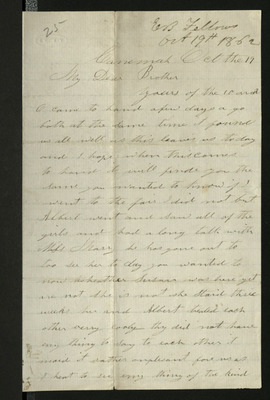 25
E B Fellows
Oct 19th 1862
Oct the 19
My Dear Brother
yours of the 10 and
came to hand a few days ago
both at the same time I found
us all well as this leaves us today
and I hope when these comes
to hand it will find you the
same you wanted to know if I
went to the fair I did not but
Albert went and saw all of the
girls and had a long talk with
Mary he has gone out to
see her to day you wanted to
now whether Susan was here yet
are not she is not she staid three
weeks her and Albert hated each
other very they did not have
any thing to say to each other it
maid it rather unpleasant for us as
I heat to see any thing of the kind